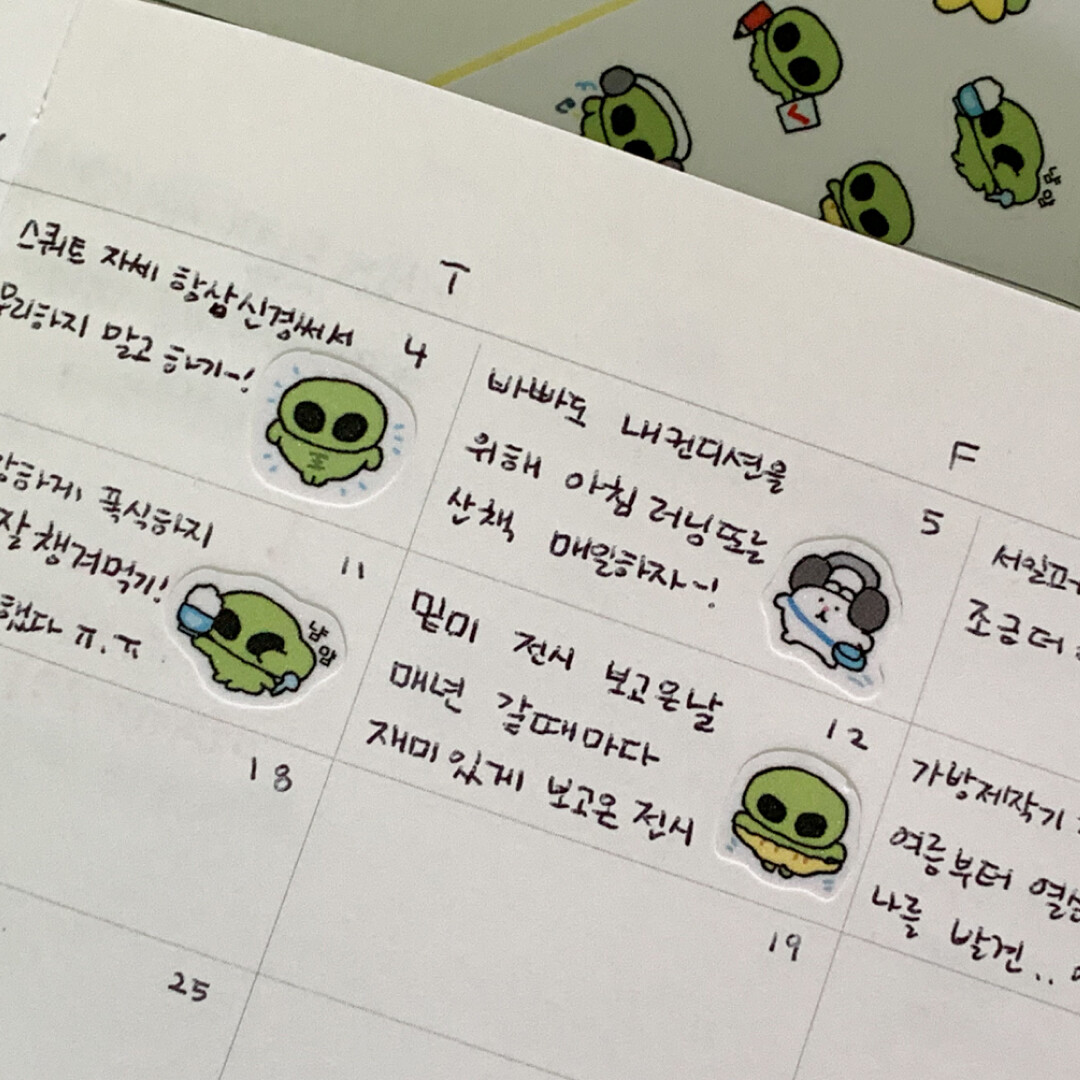 T
F
스쿼트 자세 항상신경써서
무리하지 말고 하기~!
4
바빠도 내컨디션을
위해 아침 러닝또는
산책 매일하자~!
5
조금더
폭식하지
잘챙겨먹기!
했다 ㅠ.ㅠ
냠
얌
11
밑미 전시 보고온날
매년 갈때마다
재미있게 보고온 전시
12
가방제작기
여름부터
나를 발견..
18
19
25